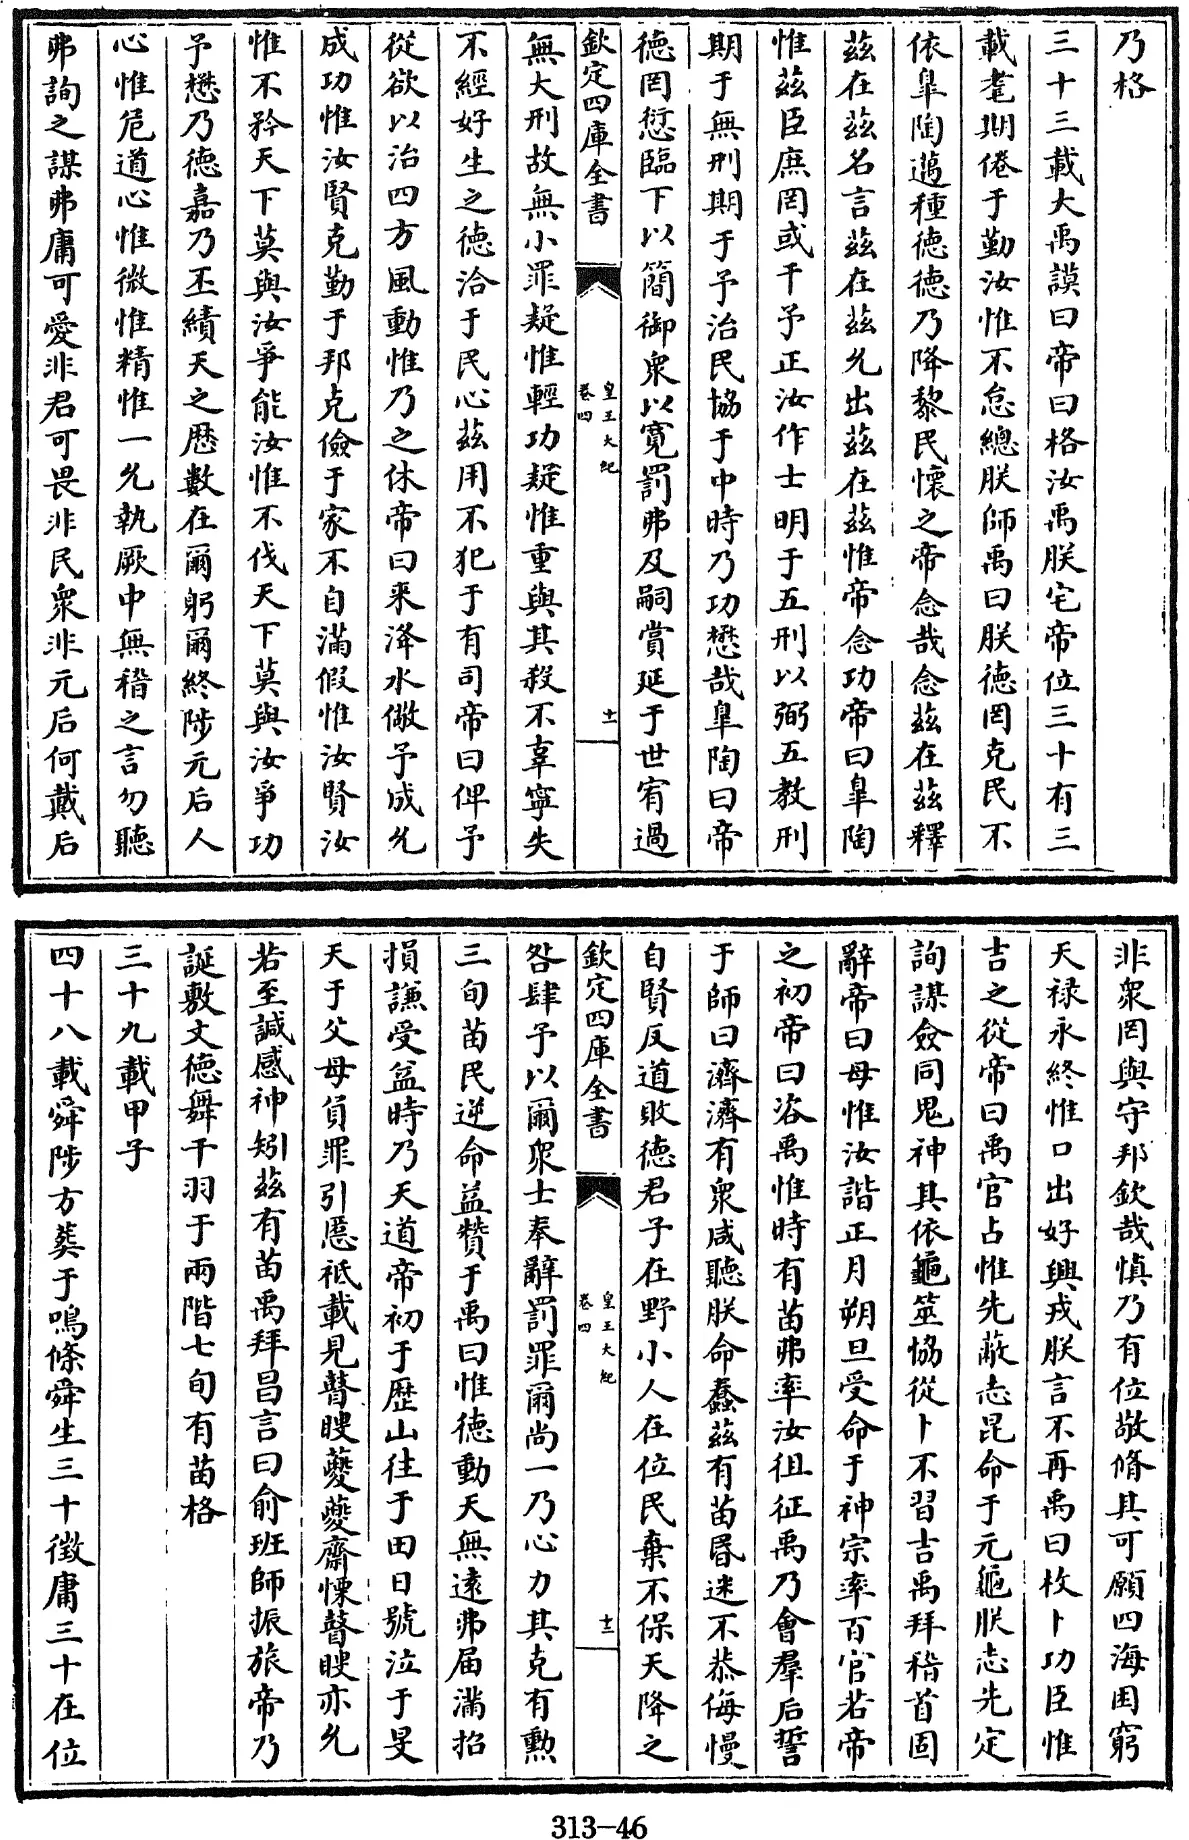 乃格
三十三載大禹謨曰帝曰格汝禹朕宅帝位三十有三
載耄期倦于勤汝惟不怠緫朕師禹曰朕德罔克民不
依臯陶邁種德德乃降黎民懷之帝念哉念兹在兹釋
兹在兹名言兹在兹允出兹在兹惟帝念功帝曰臯陶
惟兹臣庶罔或干予正汝作士明于五刑以弼五教刑
期于無刑期于予治民協于中時乃功懋哉臯陶曰帝
德罔愆臨下以簡御衆以寛罰弗及嗣賞延于世宥過
欽定四庫全書
皇王大紀
卷四
十一
無大刑故無小罪疑惟輕功疑惟重與其殺不辜寧失
不經好生之德洽于民心兹用不犯于有司帝曰俾予
從欲以治四方風動惟乃之休帝曰來洚水儆予成允
成功惟汝賢克勤于邦克儉于家不自滿假惟汝賢汝
惟不矜天下莫與汝爭能汝惟不伐天下莫與汝爭功
予懋乃德嘉乃丕績天之歷數在爾躬爾終陟元后人
心惟危道心惟微惟精惟一允執厥中無稽之言勿聽
弗詢之謀弗庸可愛非君可畏非民衆非元后何戴后
非衆罔與守邦欽哉慎乃有位敬脩其可願四海困窮
天禄永終惟口出好興戎朕言不再禹曰枚卜功臣惟
吉之從帝曰禹官占惟先蔽志昆命于元龜朕志先定
詢謀僉同鬼神其依龜筮協從卜不習吉禹拜稽首固
辭帝曰毋惟汝諧正月朔旦受命于神宗率百官若帝
之初帝曰咨禹惟時有苗弗率汝徂征禹乃會羣后誓
于師曰濟濟有衆咸聽朕命蠢兹有苗昬迷不恭侮慢
自賢反道敗德君子在野小人在位民棄不保天降之
欽定四庫全書
皇王大紀
卷四
十二
咎肆予以爾衆士奉辭罰罪爾尚一乃心力其克有勲
三旬苗民逆命益贊于禹曰惟德動天無逺弗届滿招
損謙受益時乃天道帝初于歴山往于田日號泣于旻
天于父母負罪引慝祗載見瞽瞍夔夔齋慄瞽瞍亦允
若至諴感神矧兹有苗禹拜昌言曰俞班師振旅帝乃
誕敷文德舞干羽于兩階七旬有苗格
三十九載甲子
四十八載舜陟方葬于鳴條舜生三十徵庸三十在位
313-46